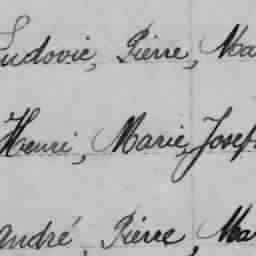 Ludovic, Pierre, Ma
Henri, Marie, Josef
André, Pierre, Ma